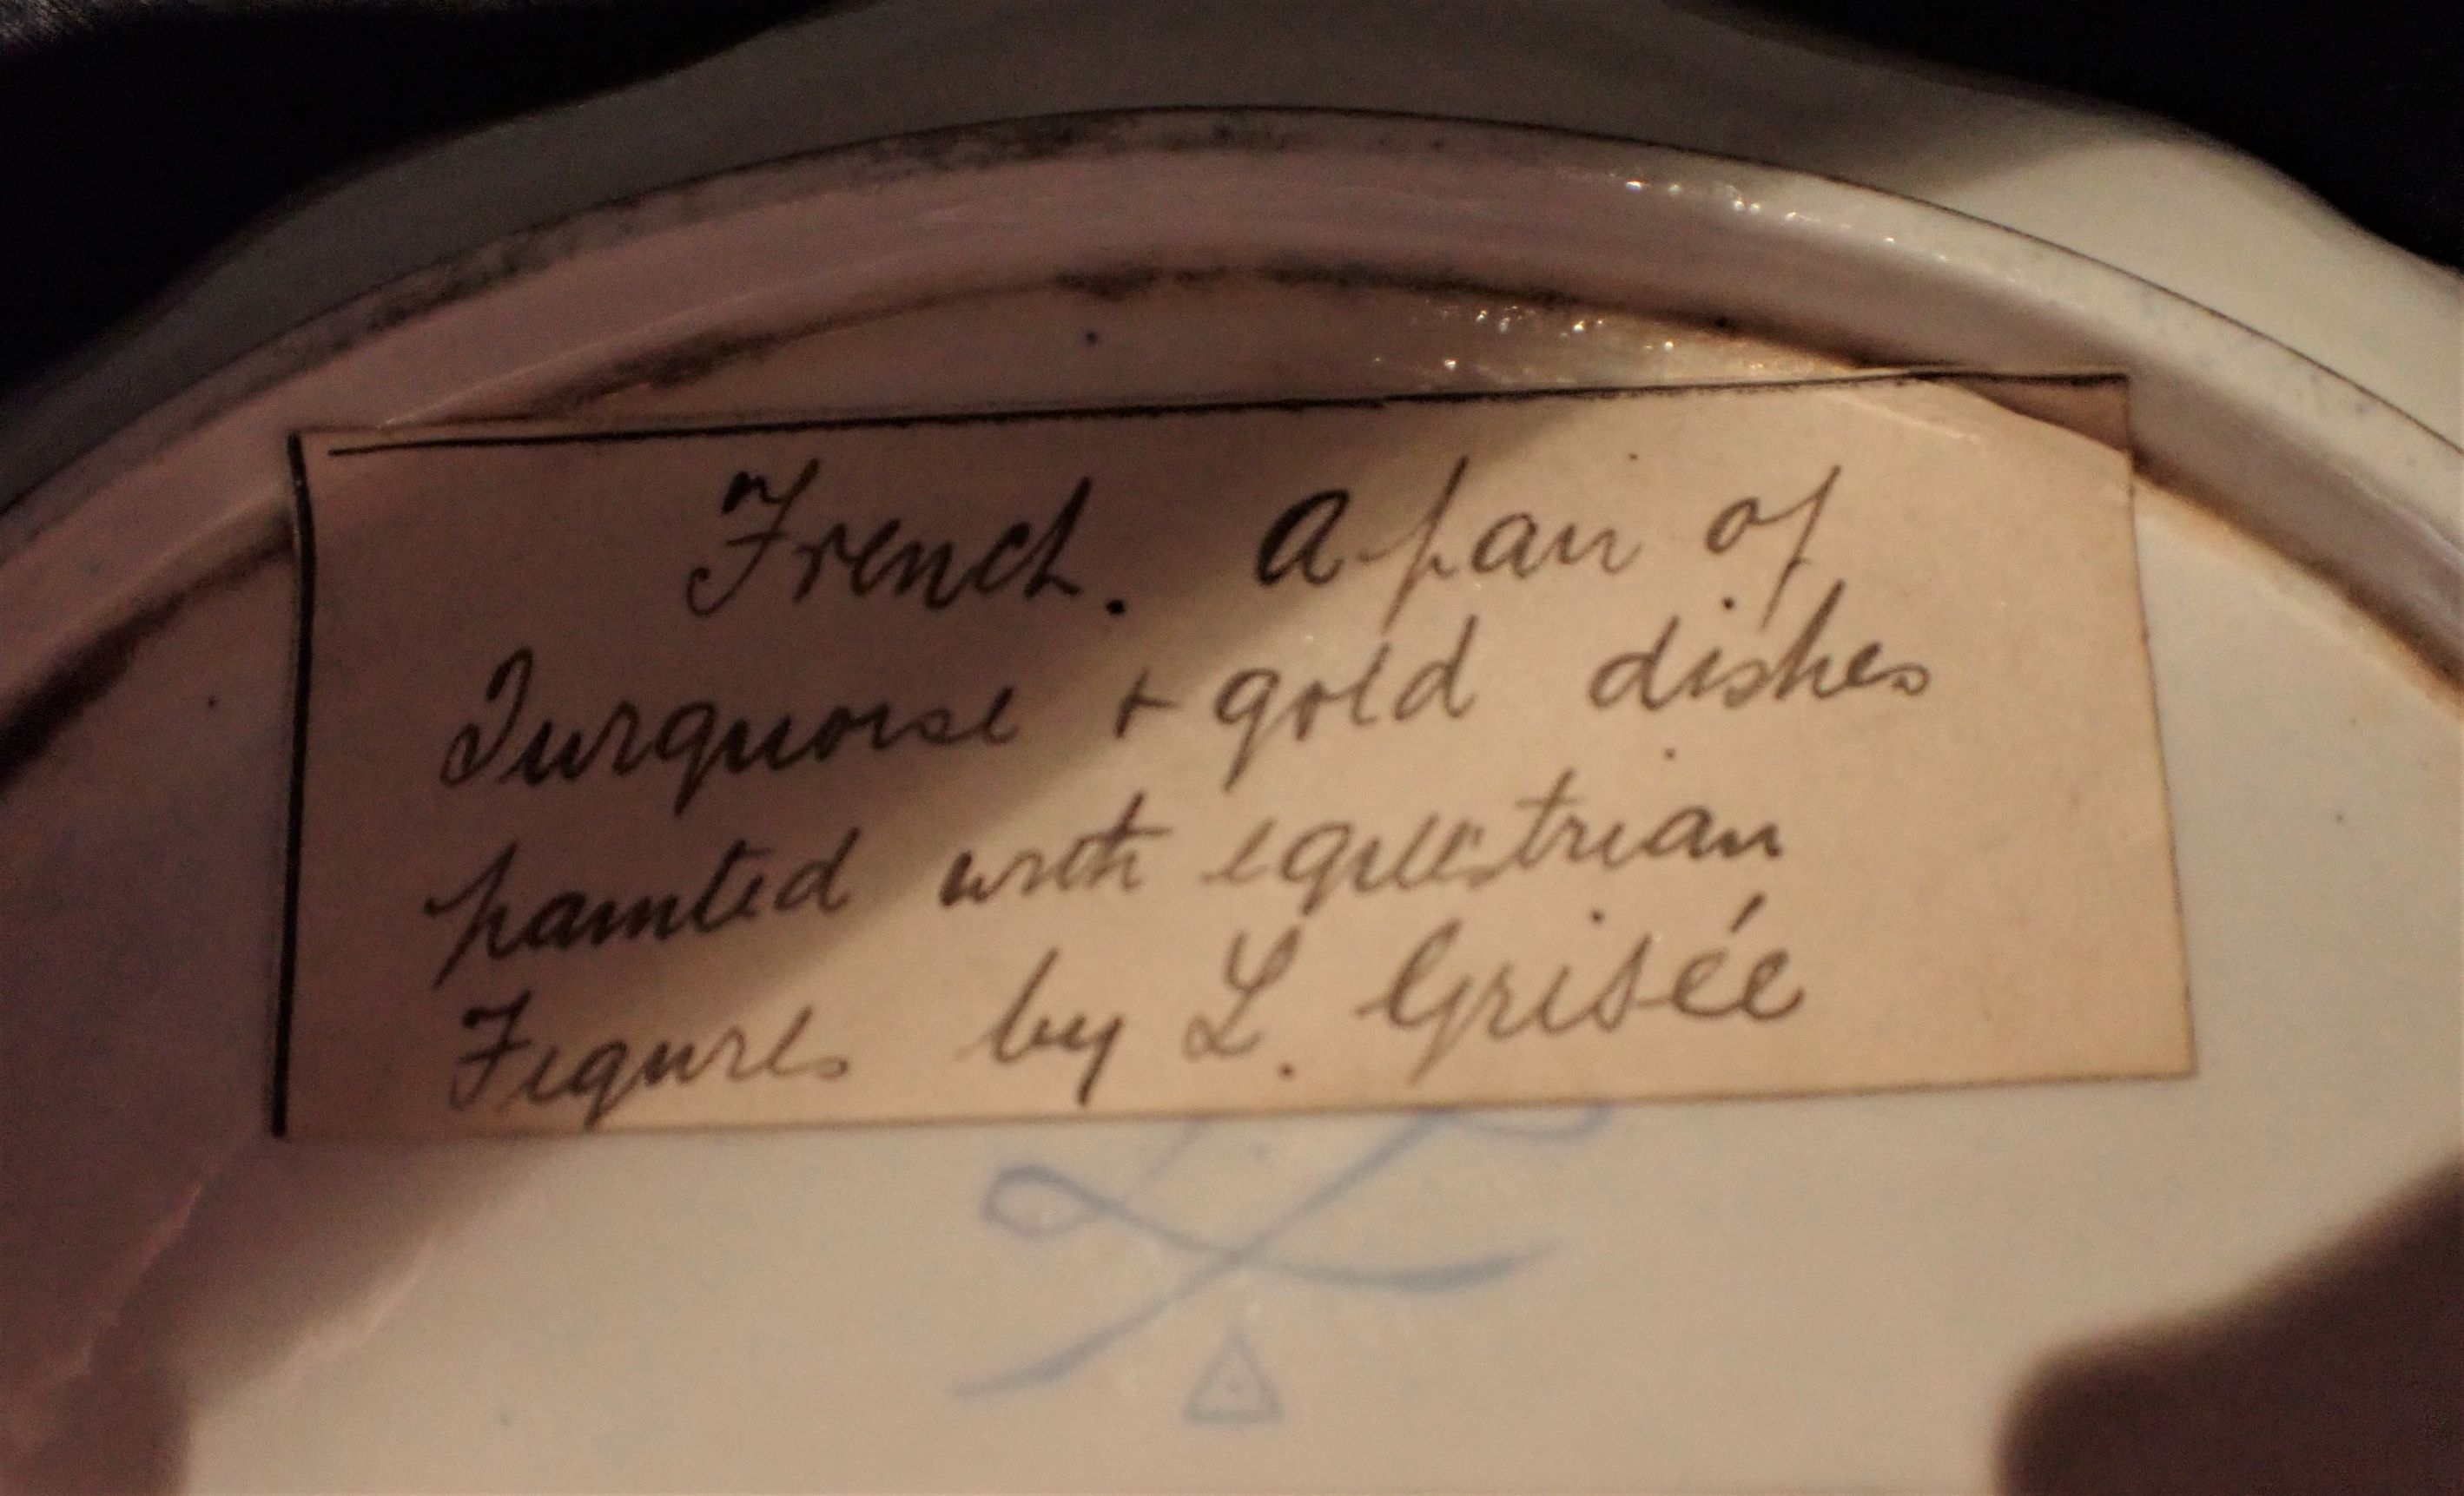 French. A pair of
Turquoise + gold dishes
painted with equestrian
Figures by L. Grisée